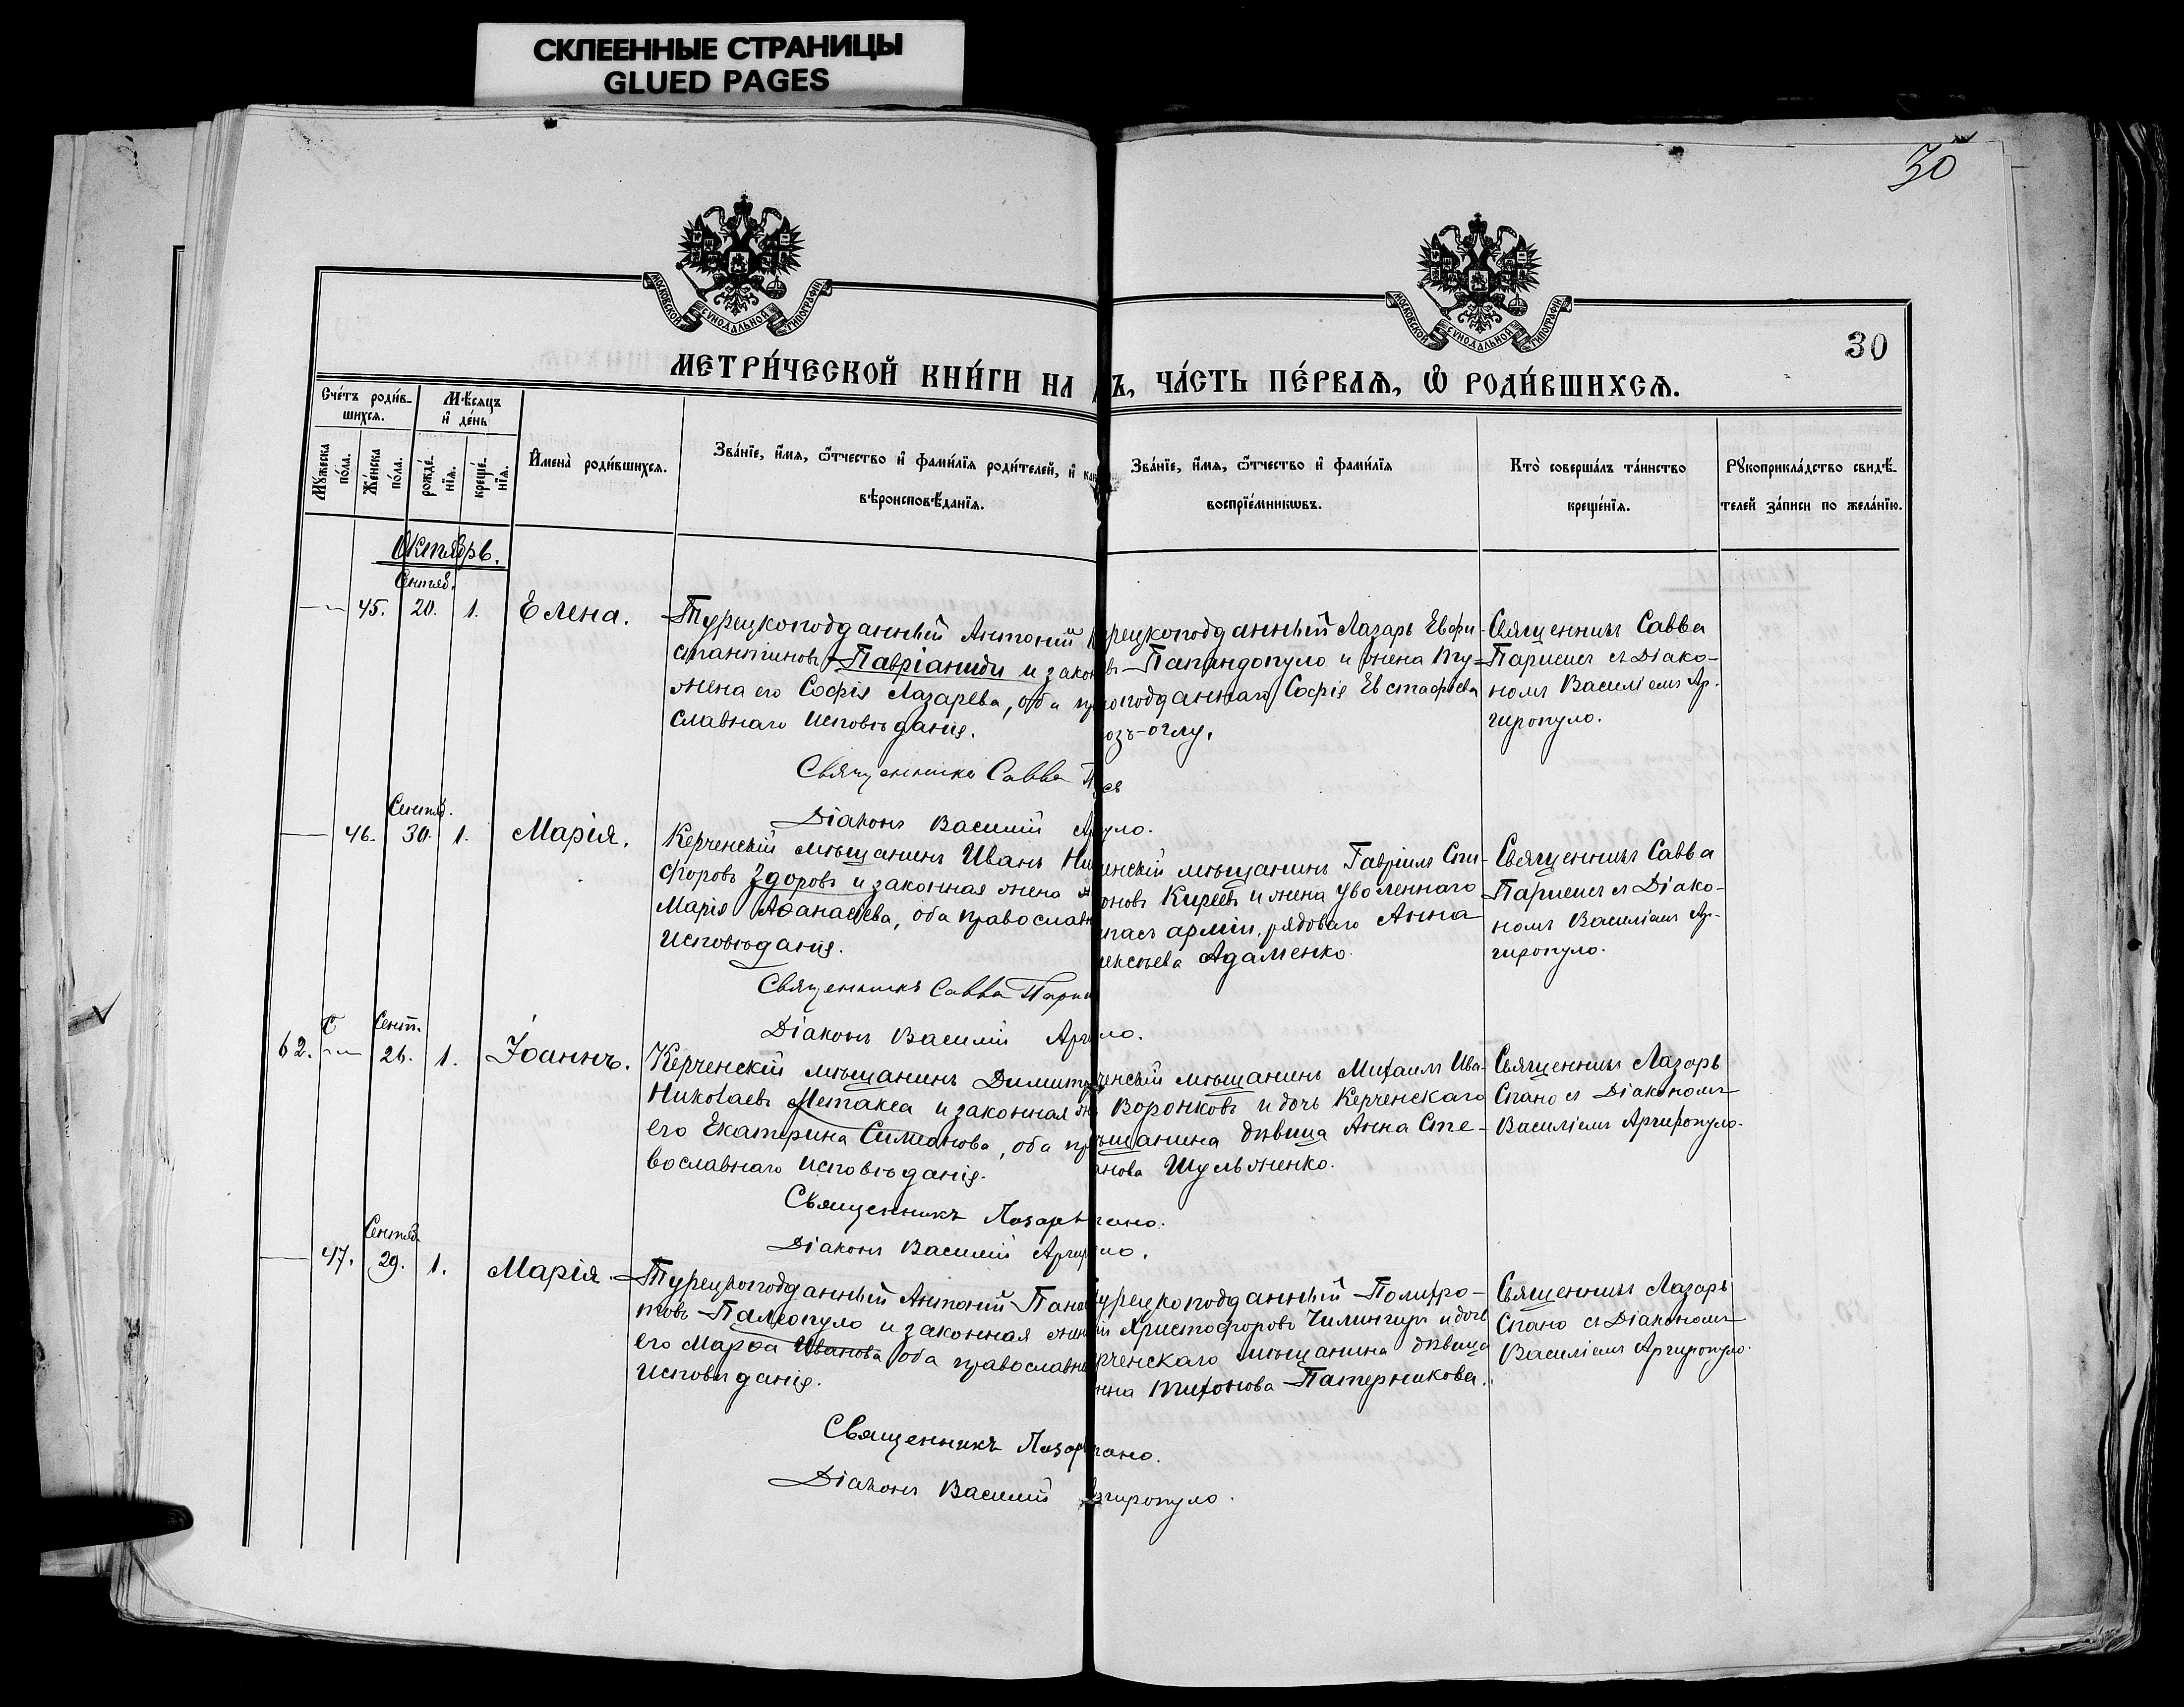 СКЛЕЕННЫЕ СТРАНИЦЫ
GLUED PAGES
30
МОСКОВСКОЙ СѴНОДАЛЬНОЙ ТИПОГРАФІИ
МОСКОВСКОЙ СѴНОДАЛЬНОЙ ТИПОГРАФІИ
30
МЕТРИ́ЧЕСКОЙ КНИ́ГИ НА
Ъ, ЧА́СТЬ ПЕ́РВАѦ, Ѿ РОДИ́ВШИХСѦ.
Сче́тъ роди́в-
шихся.
Мѣ́сяцъ
и҆ де́нь
Му́жеска
по́ла.
Же́нска
по́ла.
рожде́-
нїя.
креще́-
нїя.
И҆мена̀ роди́вшихся.
Зва́нїе, и҆́мя, ѻ҆́тчество и҆ фами́лїя роди́телей, и҆ как
вѣроисповѣ́данїя.
Зва́нїе, и҆́мя, ѻ҆́тчество и҆ фами́лїя
воспрїе́мникѡвъ.
Кто̀ соверша́лъ та́инство
креще́нїя.
Рукоприкла́дство свидѣ́-
телей за́писи по жела́нїю.
Октябрь.
Сентяб.
45. 20. 1. Елена.
Турецкоподданный Антоній К
стантиновъ Павріаниди и закон
жена его Софія Лазарева, оба пр
славнаго исповѣданія.
Священникъ Савва П
Діаконъ Василій Ар
рецкоподданный Лазарь Евфи-
въ Папандопуло и жена ту-
коподданнаго Софія Евстафіева
озъ-оглу.
ев
уло.
Священникъ Савва
Париевъ съ Діако-
номъ Василіемъ Ар-
гиропуло.
Сентяб.
46. 30. 1. Марія.
Керченскій мѣщанинъ Иванъ Ни
форовъ Здоровъ и законная жена
Марія Аѳанасіева, оба православн
исповѣданія.
Священникъ Савва Пари
Діаконъ Василій Арги
енскій мѣщанинъ Гавріилъ Спи-
оновъ Киреевъ и жена уволеннаго
апасъ арміи, рядоваго Анна
ентьева Адаменко.
ло.
Священникъ Савва
Париевъ съ Діако-
номъ Василіемъ Ар-
гиропуло.
Сент.
62. 26. 1. Іоаннъ.
Керченскій мѣщанинъ Димитр
Николаевъ Метакса и законная ж
его Екатерина Симеонова, оба пр
вославнаго исповѣданія.
Священникъ Лазарь
Діаконъ Василій Аргир
ченскій мѣщанинъ Михаилъ Ива-
Воронковъ и дочь Керченскаго
ѣщанина дѣвица Анна Сте-
анова Шульженко.
пано.
ло.
Священникъ Лазарь
Спано съ Діакономъ
Василіемъ Аргиропуло.
Сентяб.
47. 29. 1. Марія.
Турецкоподданный Антоній Пана
товъ Палеопуло и законная жен
его Марѳа Иванова оба православн
исповѣданія.
Священникъ Лазарь
Діаконъ Василій
урецкоподданный Полихро-
ій Христофоровъ Чилингиръ и дочь
рченскаго мѣщанина дѣвица
нна Тихонова Патерникова.
пано.
ргиропуло.
Священникъ Лазарь
Спано съ Діакономъ
Василіемъ Аргиропуло.